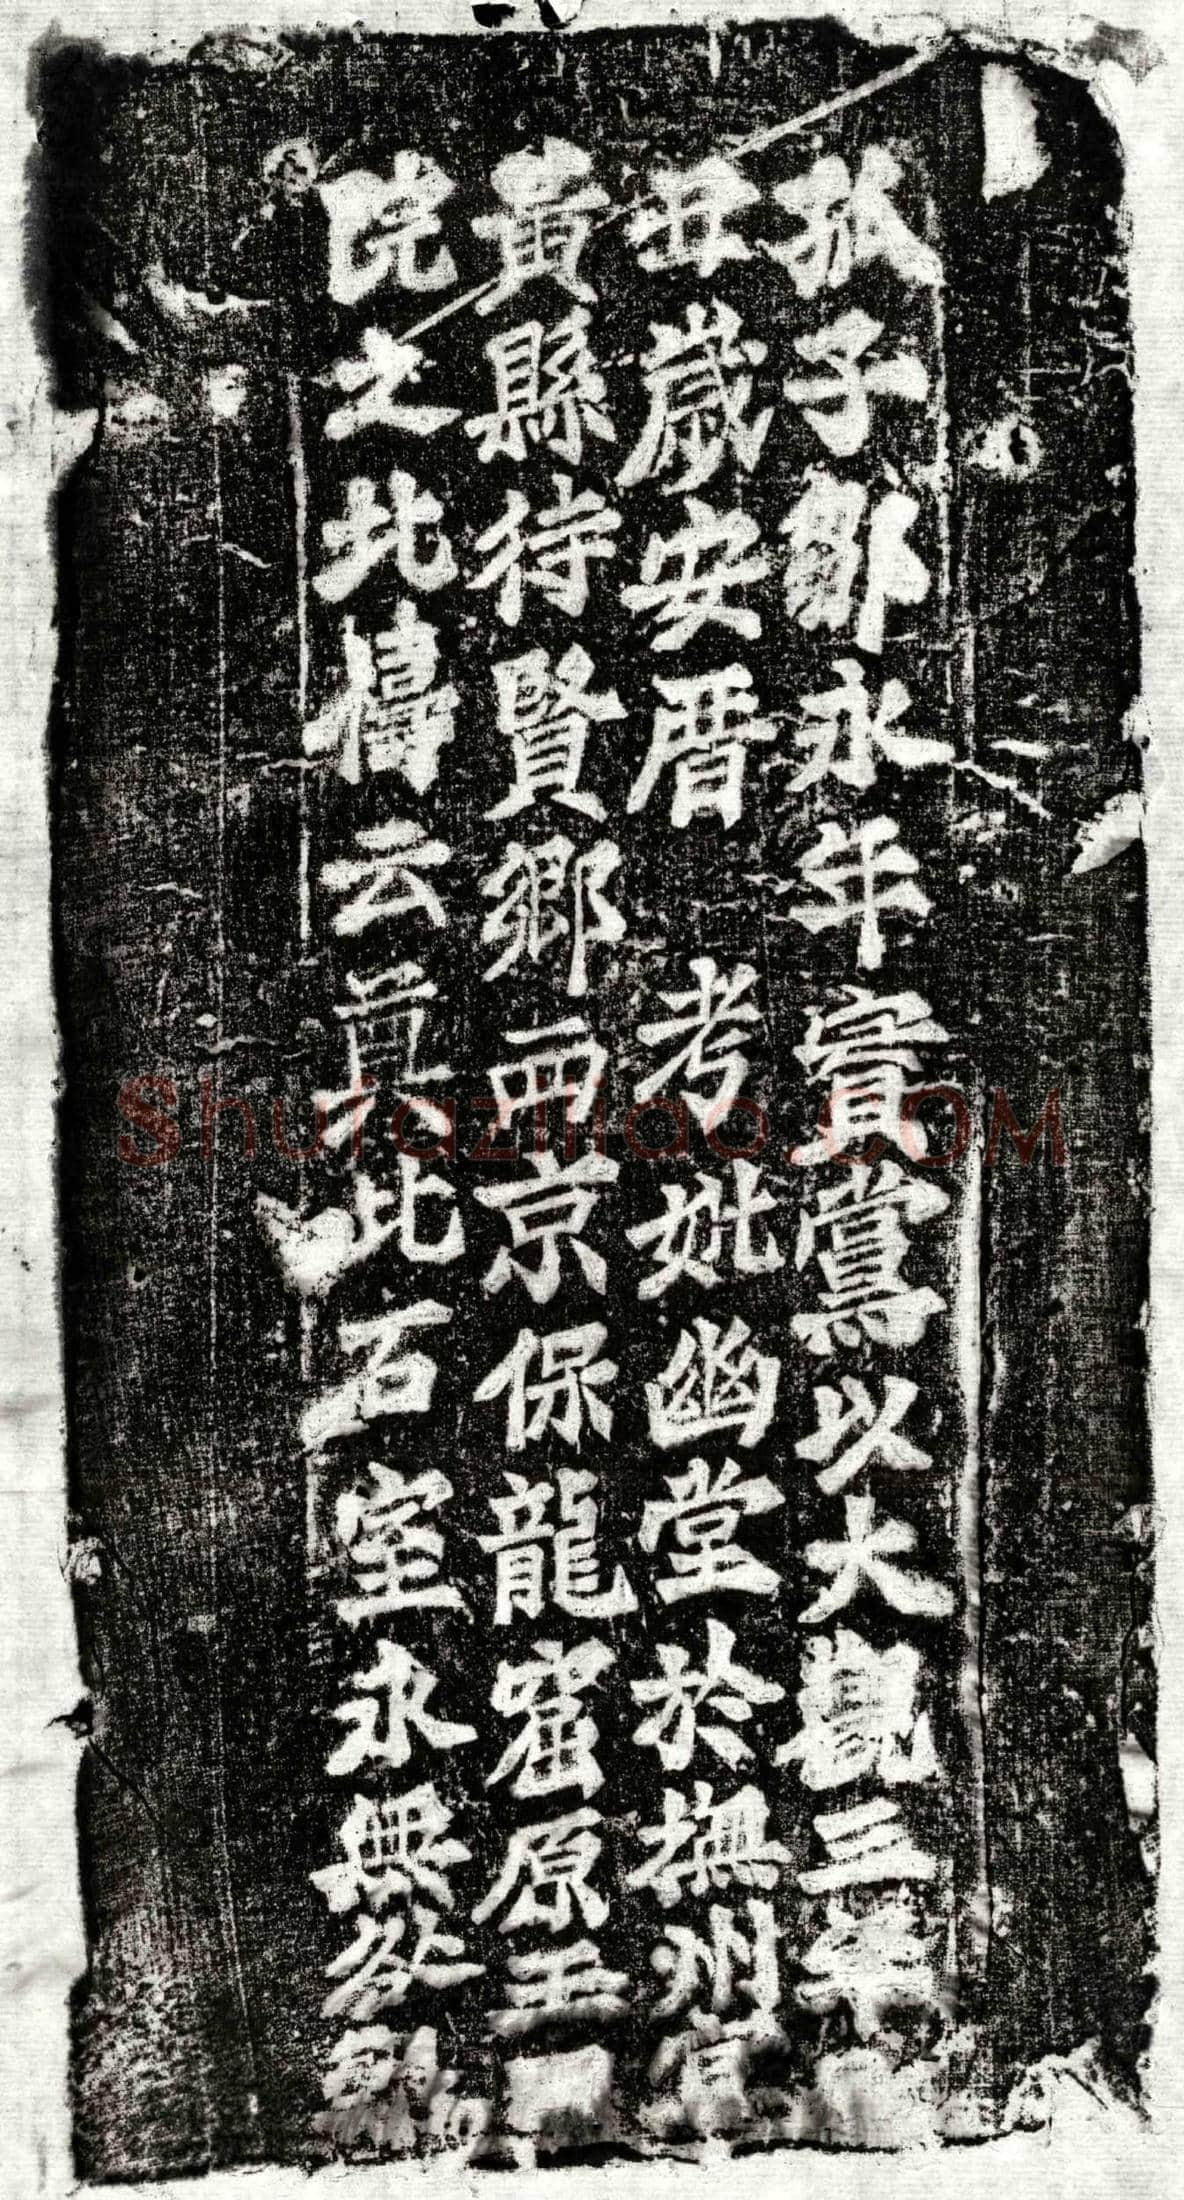 孤子鄒永年賓黨以大觀三年
丑歲安厝 考妣幽堂於撫州宜
黃縣待賢鄉西京保龍窟原王
院之北禱云冥此石室永無
Shufaziliao.COM